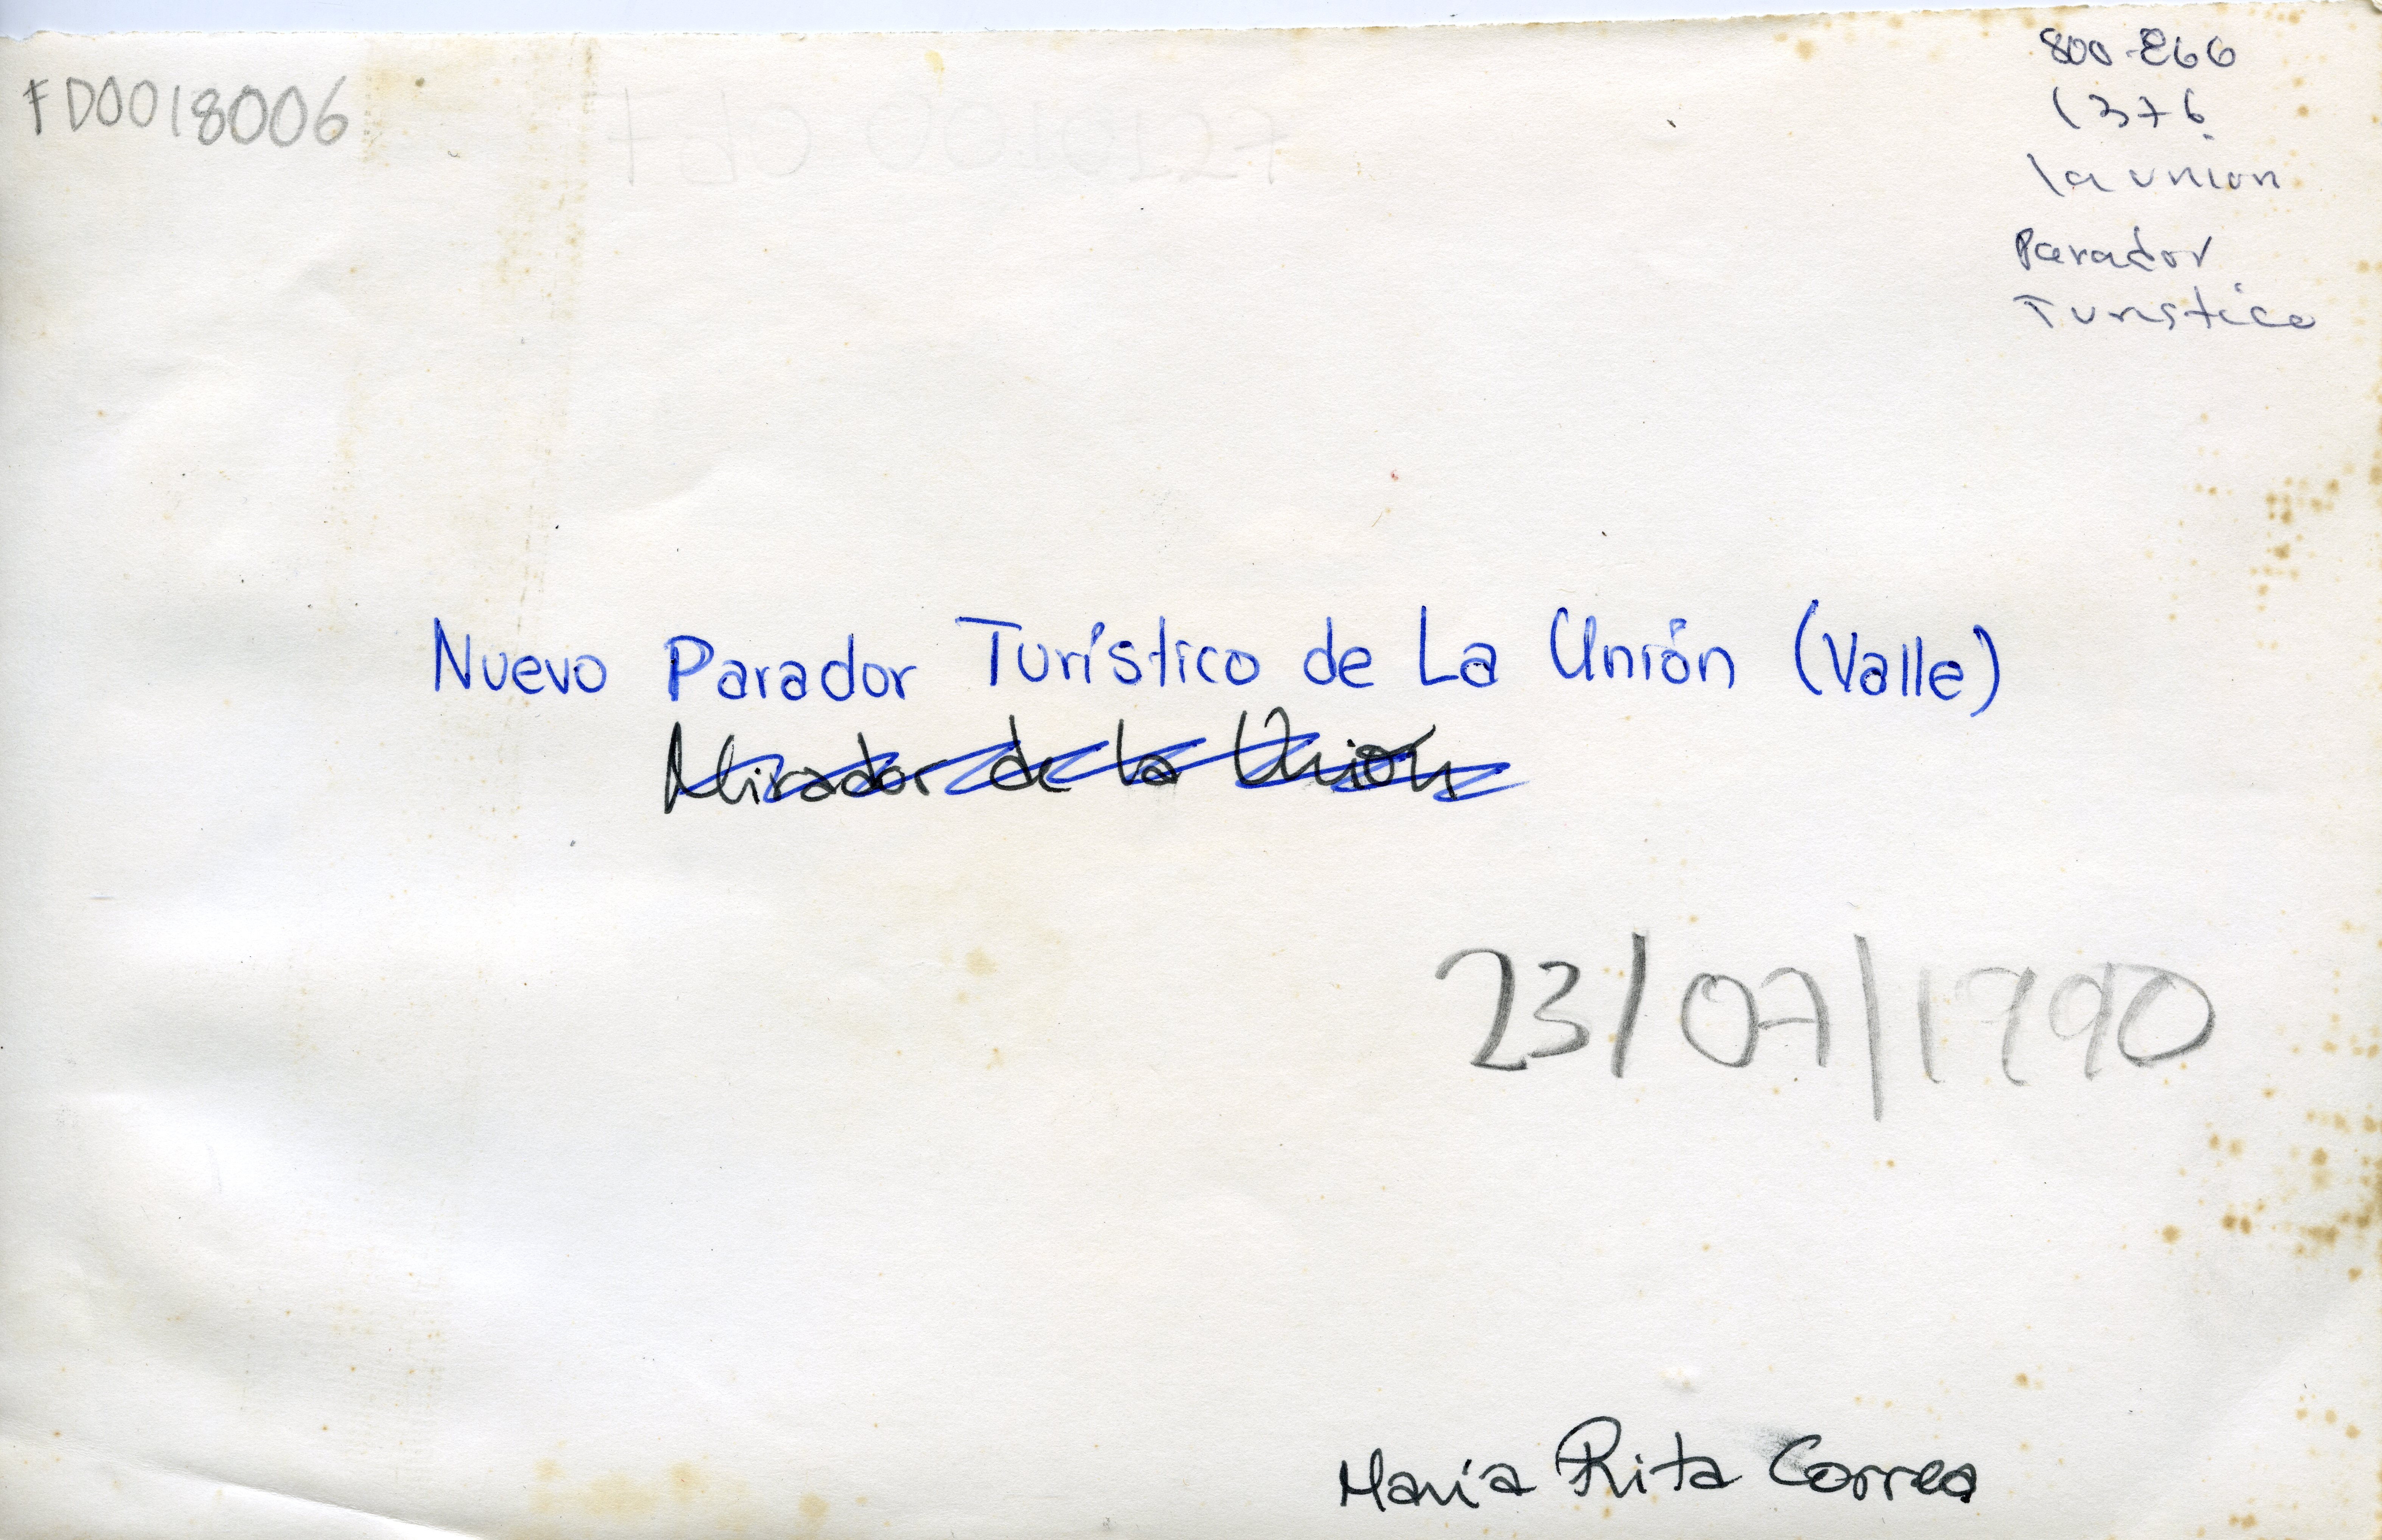 FD0018006
800-266
1376
la union
Parador
Turistico
Nuevo Parador Turístico de La Unión (Valle)
Mirador de la Unión
23/07/1990
María Rita Correa